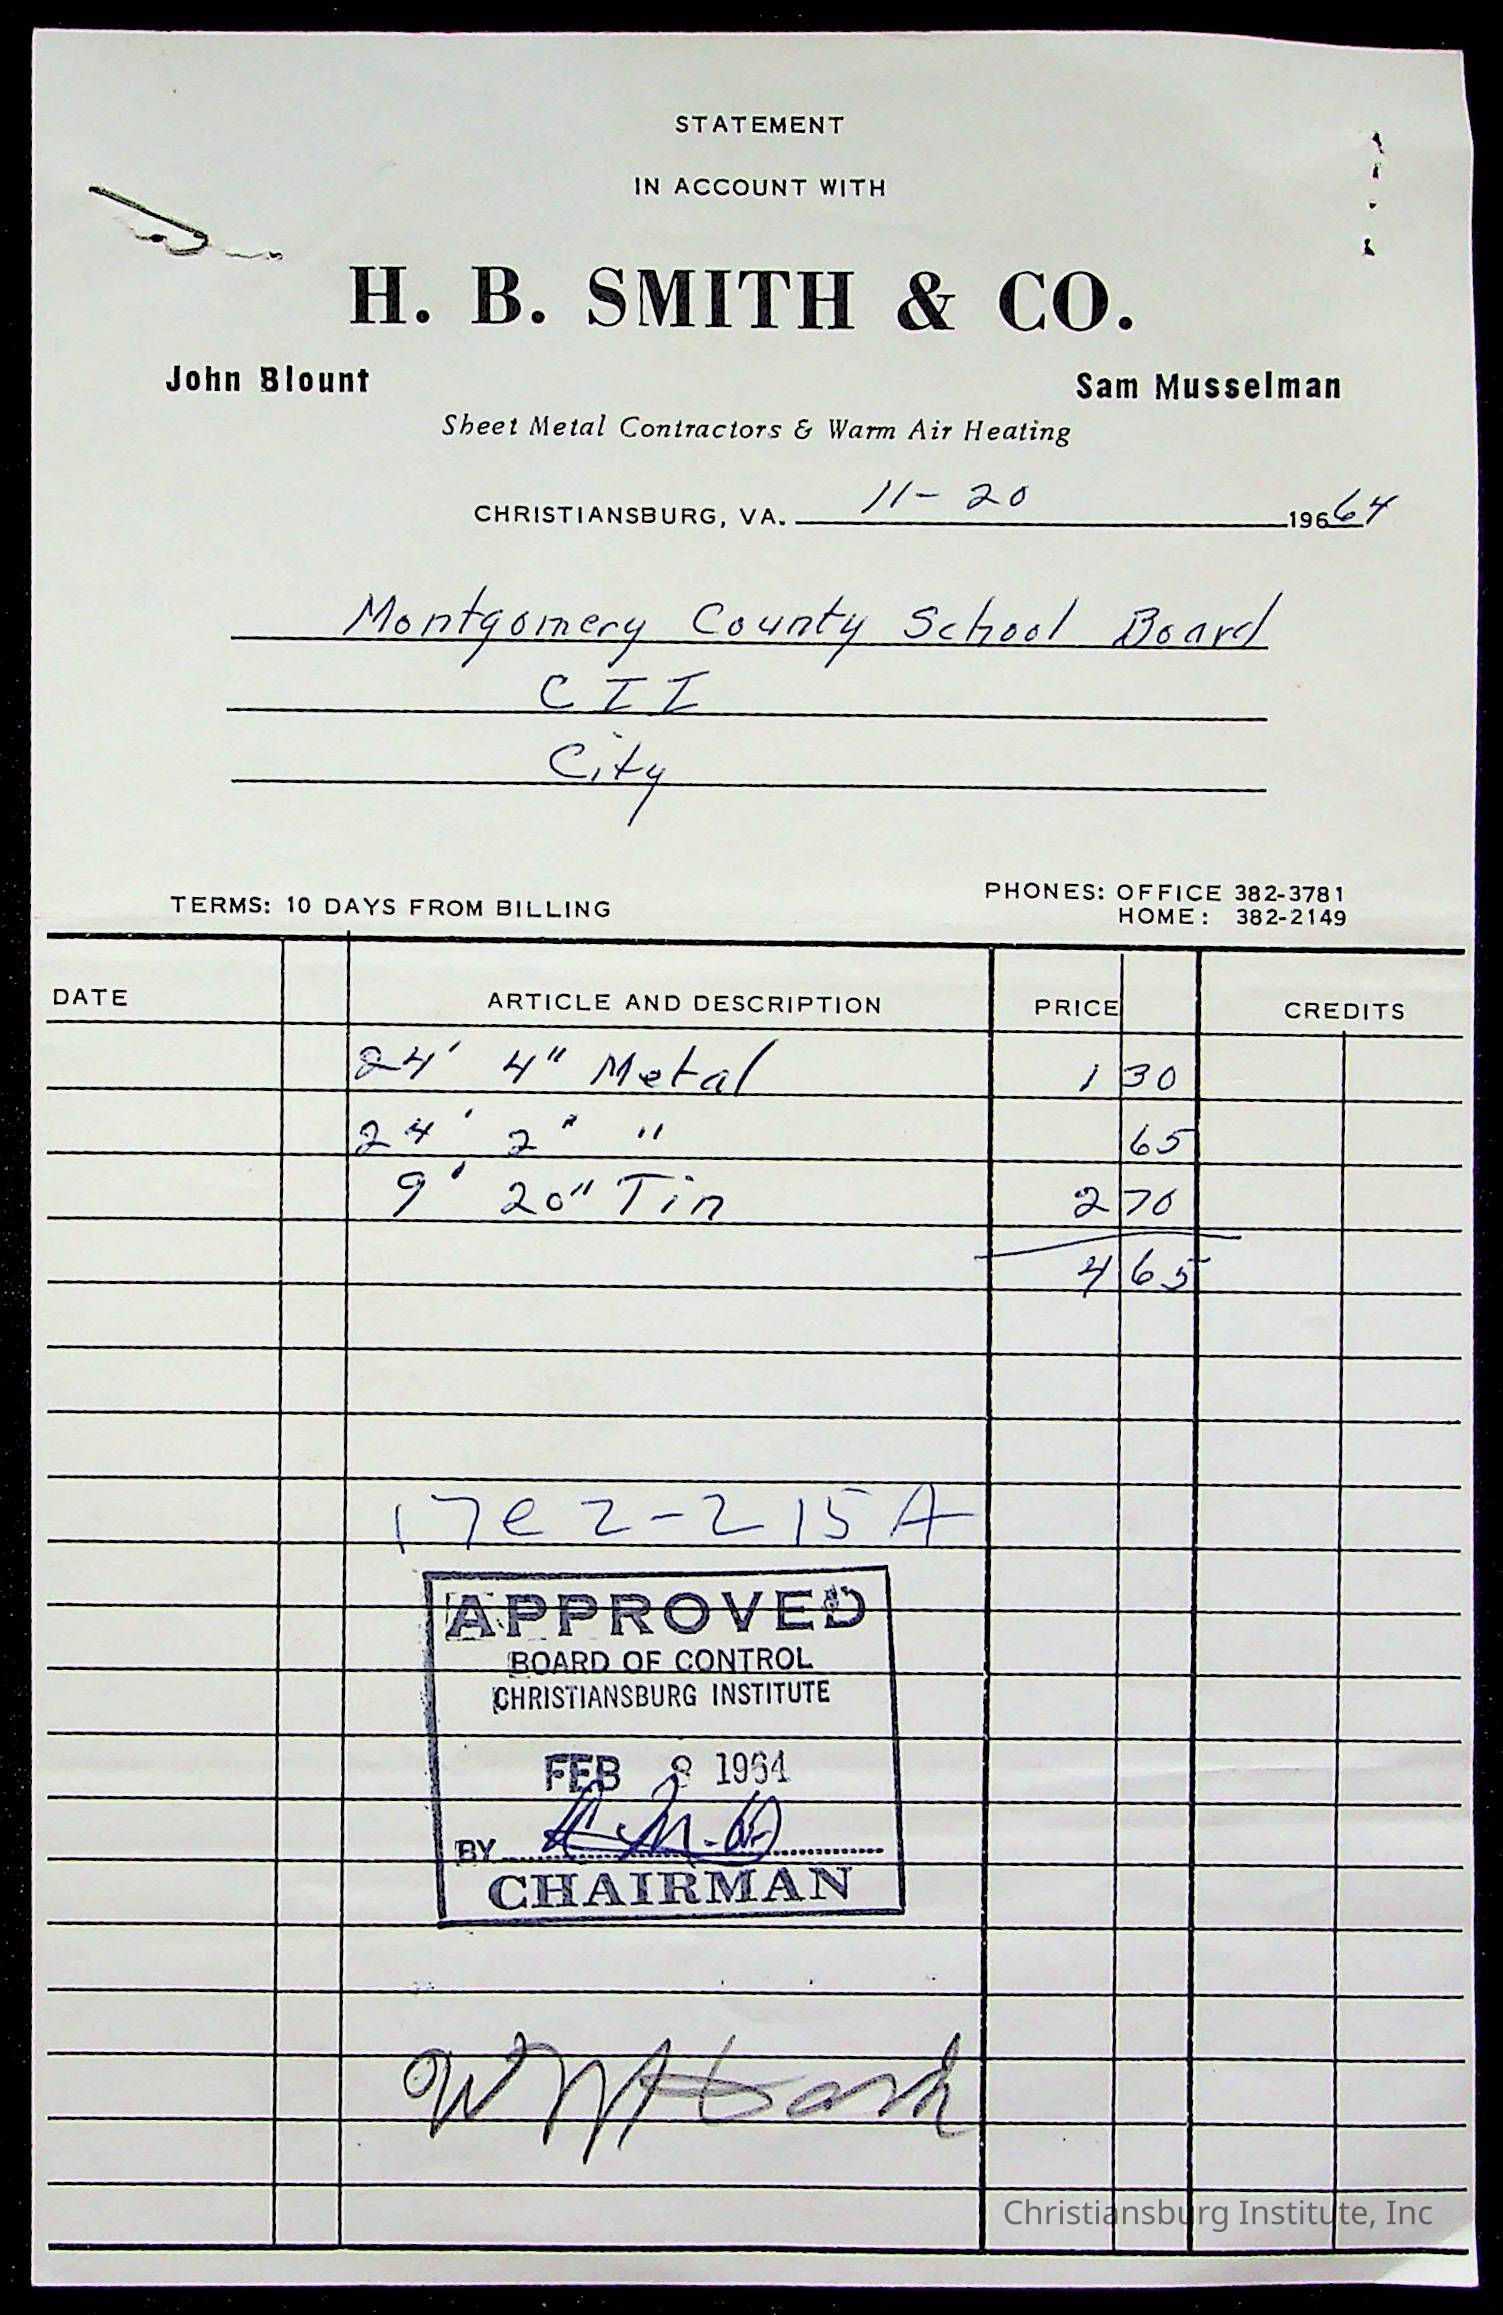 STATEMENT
IN ACCOUNT WITH
H. B. SMITH & CO.
John Blount Sam Musselman
Sheet Metal Contractors & Warm Air Heating
CHRISTIANSBURG, VA. 11-20 19664
Montgomery County School Board
CII
City
TERMS: 10 DAYS FROM BILLING
PHONES: OFFICE 382-3781
HOME: 382-2149
DATE ARTICLE AND DESCRIPTION PRICE CREDITS
24' 4" Metal 1 30
24' 2" " 65
9' 20" Tin 2 70
4 65
17e2-215A
APPROVED
BOARD OF CONTROL
CHRISTIANSBURG INSTITUTE
FEB 8 1964
BY
CHAIRMAN
Christiansburg Institute, Inc